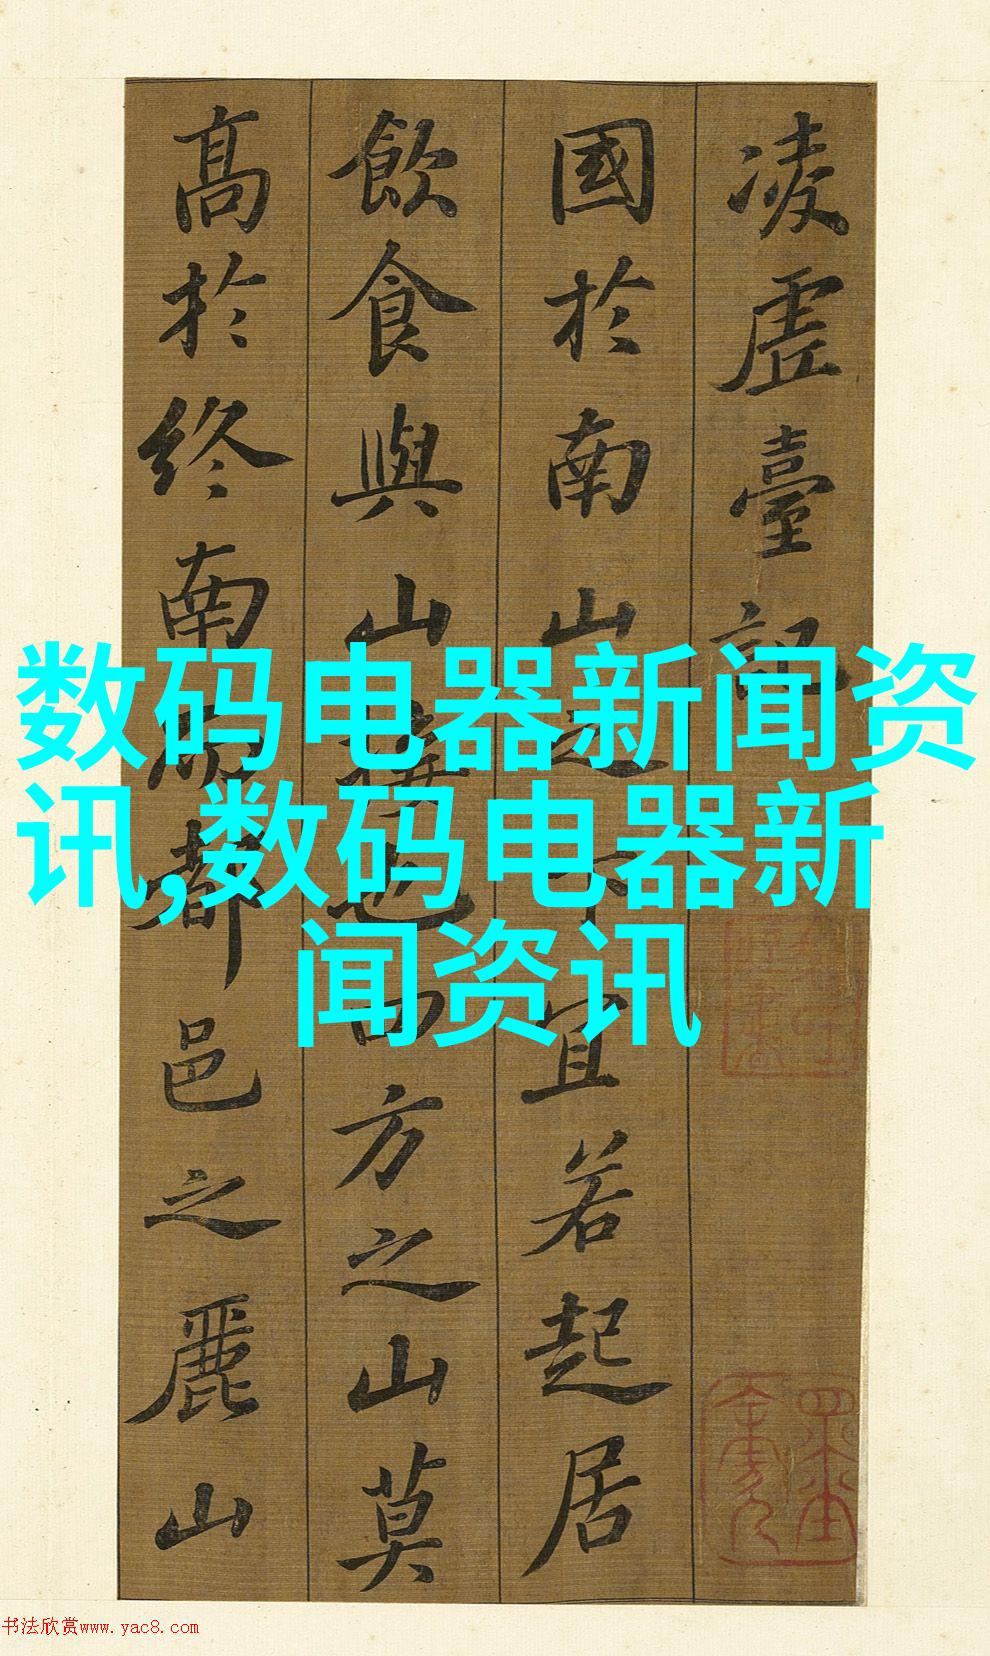 凌虛臺記
國於南山之下宜若起居
飲食與山接也四方之山莫
高於終南而都邑之麗山
数码电器新闻资
讯,数码电器新
闻资讯
书法欣赏www.yac8.com